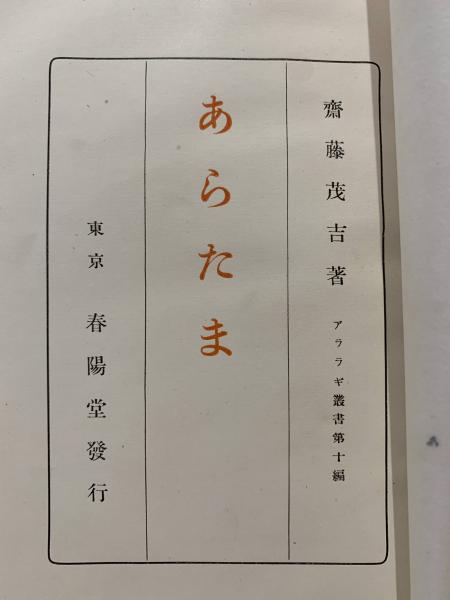 齋藤茂吉著 アララギ叢書第十編
あらたま
東京 春陽堂發行